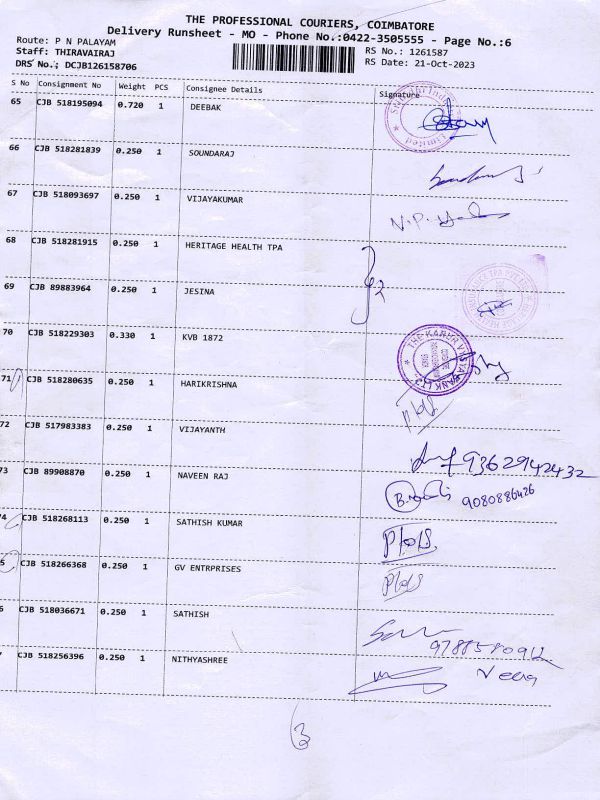 THE PROFESSIONAL COURIERS, COIMBATORE
Delivery Runsheet - MO - Phone No.:0422-3505555 - Page No.:6
Route: P N PALAYAM
Staff: THIRAVAIRAJ
DRS No.: DCJB126158706
RS No.: 1261587
RS Date: 21-Oct-2023
S No Consignment No Weight PCS Consignee Details Signature
65 CJB 518195094 0.720 1 DEEBAK
66 CJB 518281839 0.250 1 SOUNDARAJ
67 CJB 518093697 0.250 1 VIJAYAKUMAR
68 CJB 518281915 0.250 1 HERITAGE HEALTH TPA
69 CJB 89883964 0.250 1 JESINA
70 CJB 518229303 0.330 1 KVB 1872
71 CJB 518280635 0.250 1 HARIKRISHNA
72 CJB 517983383 0.250 1 VIJAYANTH
9362942432
73 CJB 89908870 0.250 1 NAVEEN RAJ
9080886426
74 CJB 518268113 0.250 1 SATHISH KUMAR
5 CJB 518266368 0.250 1 GV ENTRPRISES
6 CJB 518036671 0.250 1 SATHISH
7 CJB 518256396 0.250 1 NITHYASHREE